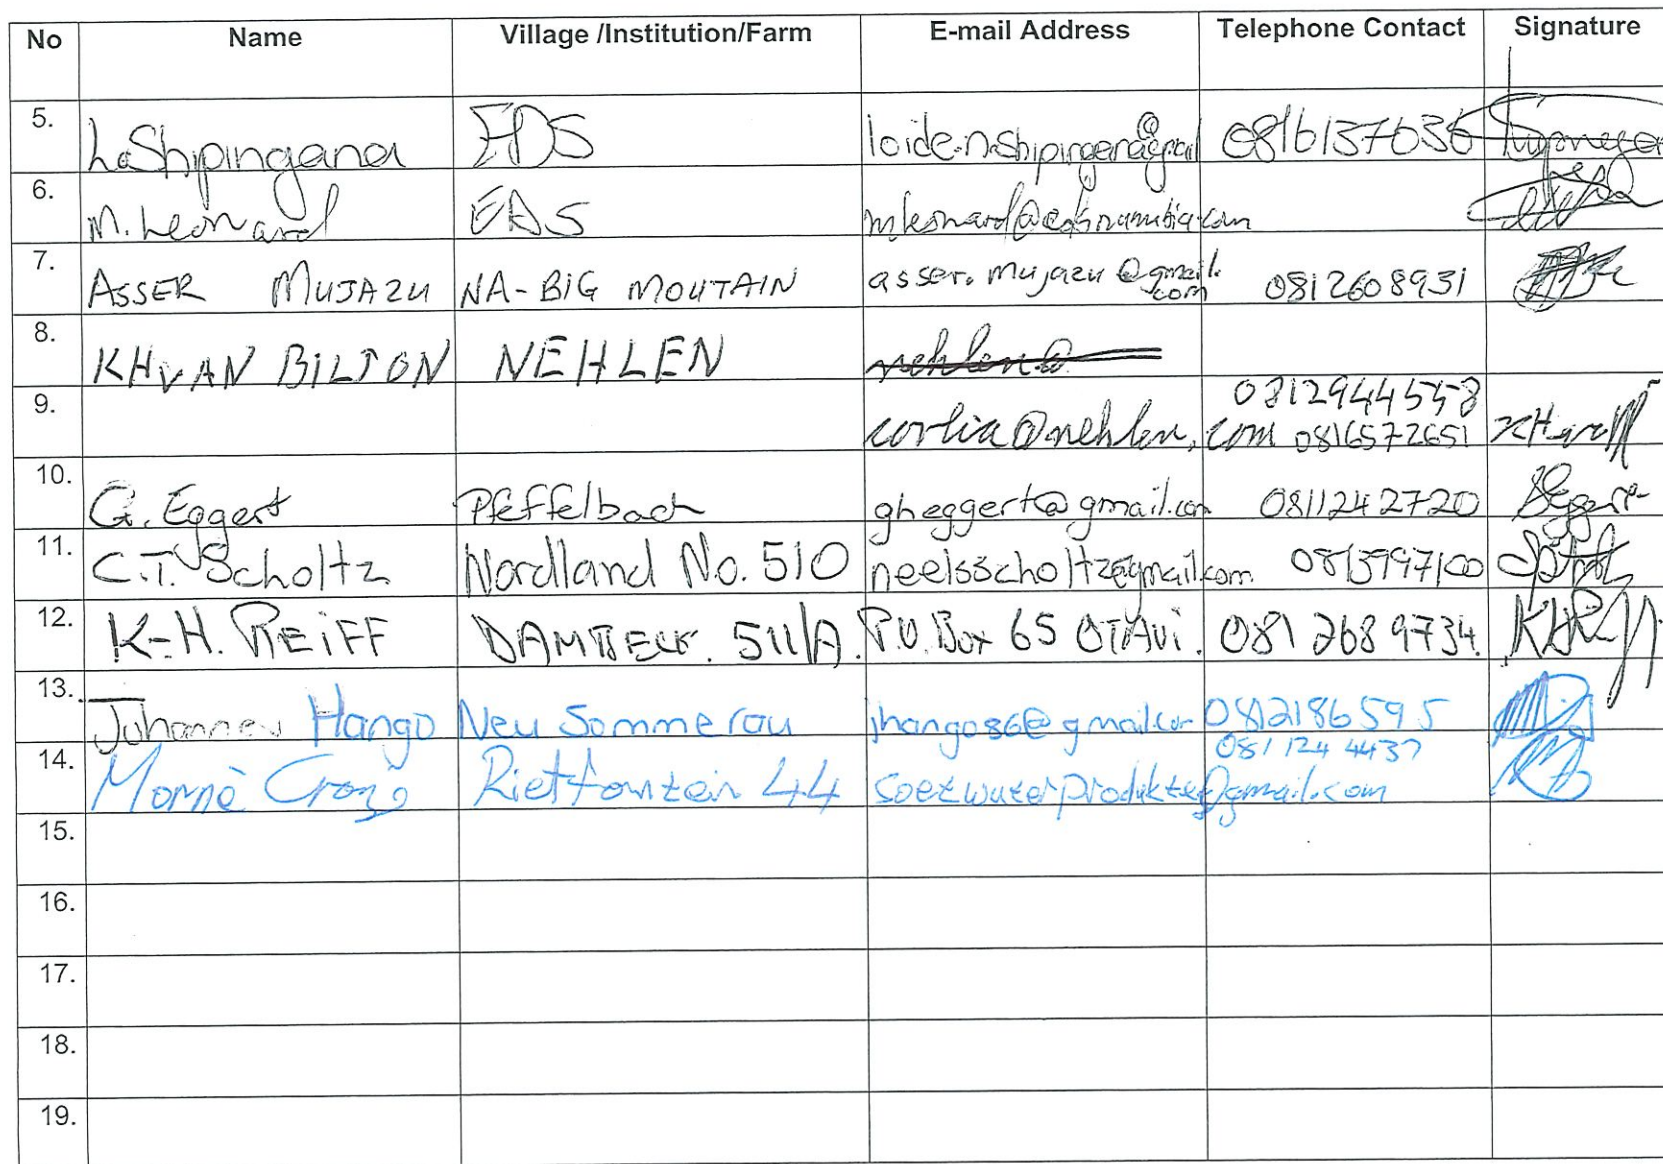 No Name Village /Institution/Farm E-mail Address Telephone Contact Signature
5. L. Shipingana EDS 0816137636
6. M. Leonard EDS
7. ASSER MUJAZU NA-BIG MOUTAIN asser.mujazu@gmail.com 0812608931
8. KH VAN BILJON NEHLEN
9. corlia@nehlen.com 0812944558 0816572651
10. G. Eggert Pfeffelbach gheggert@gmail.com 0811242720
11. C.T. Scholtz Nordland No. 510 neelsscholtz@gmail.com 0813997100
12. K-H. REIFF DAMBECK. 511/A. P.O. Box 65 OTAVI. 081 2689734
13. Johannes Hango Neu Sommerau jhango86@gmail.com 0812186595
14. Mornè Rietfontein 44 soetwaterprodukte@gmail.com 081 124 4437
15.
16.
17.
18.
19.